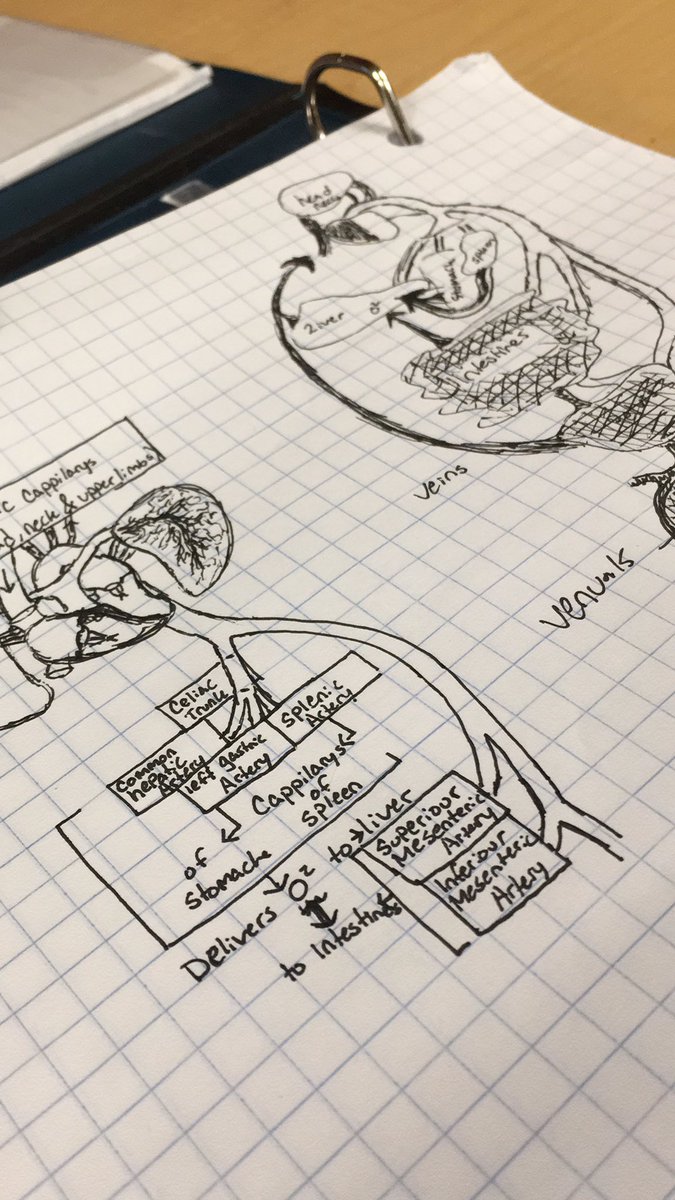 head
neck
Liver
O²
spleen
intestines
veins
venuals
ic Cappilarys
d, neck & upper limbs
Celiac
Trunk
Splenic
Artery
Common
hepatic
Artery
left gastric
Artery
Cappilarys
of
Spleen
of
Stomache
to liver
Superiour
Mesenteric
Artery
Inferiour
Mesenteric
Artery
Delivers O²
to Intestines